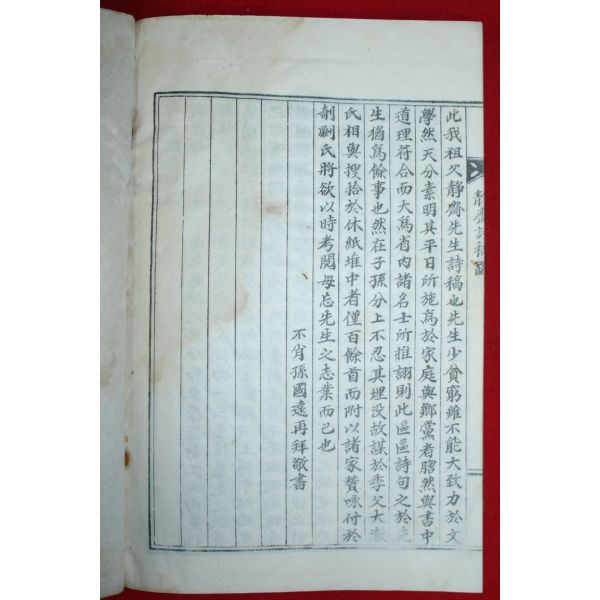 靜齋詩稿
此我祖父靜齋先生詩稿也先生少貧窮雖不能大致力於文
學然天分素明其平日所施爲於家庭與鄉黨者昭然與書中
道理符合而大爲省內諸名士所推詡則此區區詩句之於先
生猶爲餘事也然在子孫分上不忍其埋沒故謀於季父大
氏相與搜拾於休紙堆中者僅百餘首而附以諸家贊咏付於
剞劂氏將欲以時考閱毋忘先生之志業而已也
不肖孫國遠再拜敬書